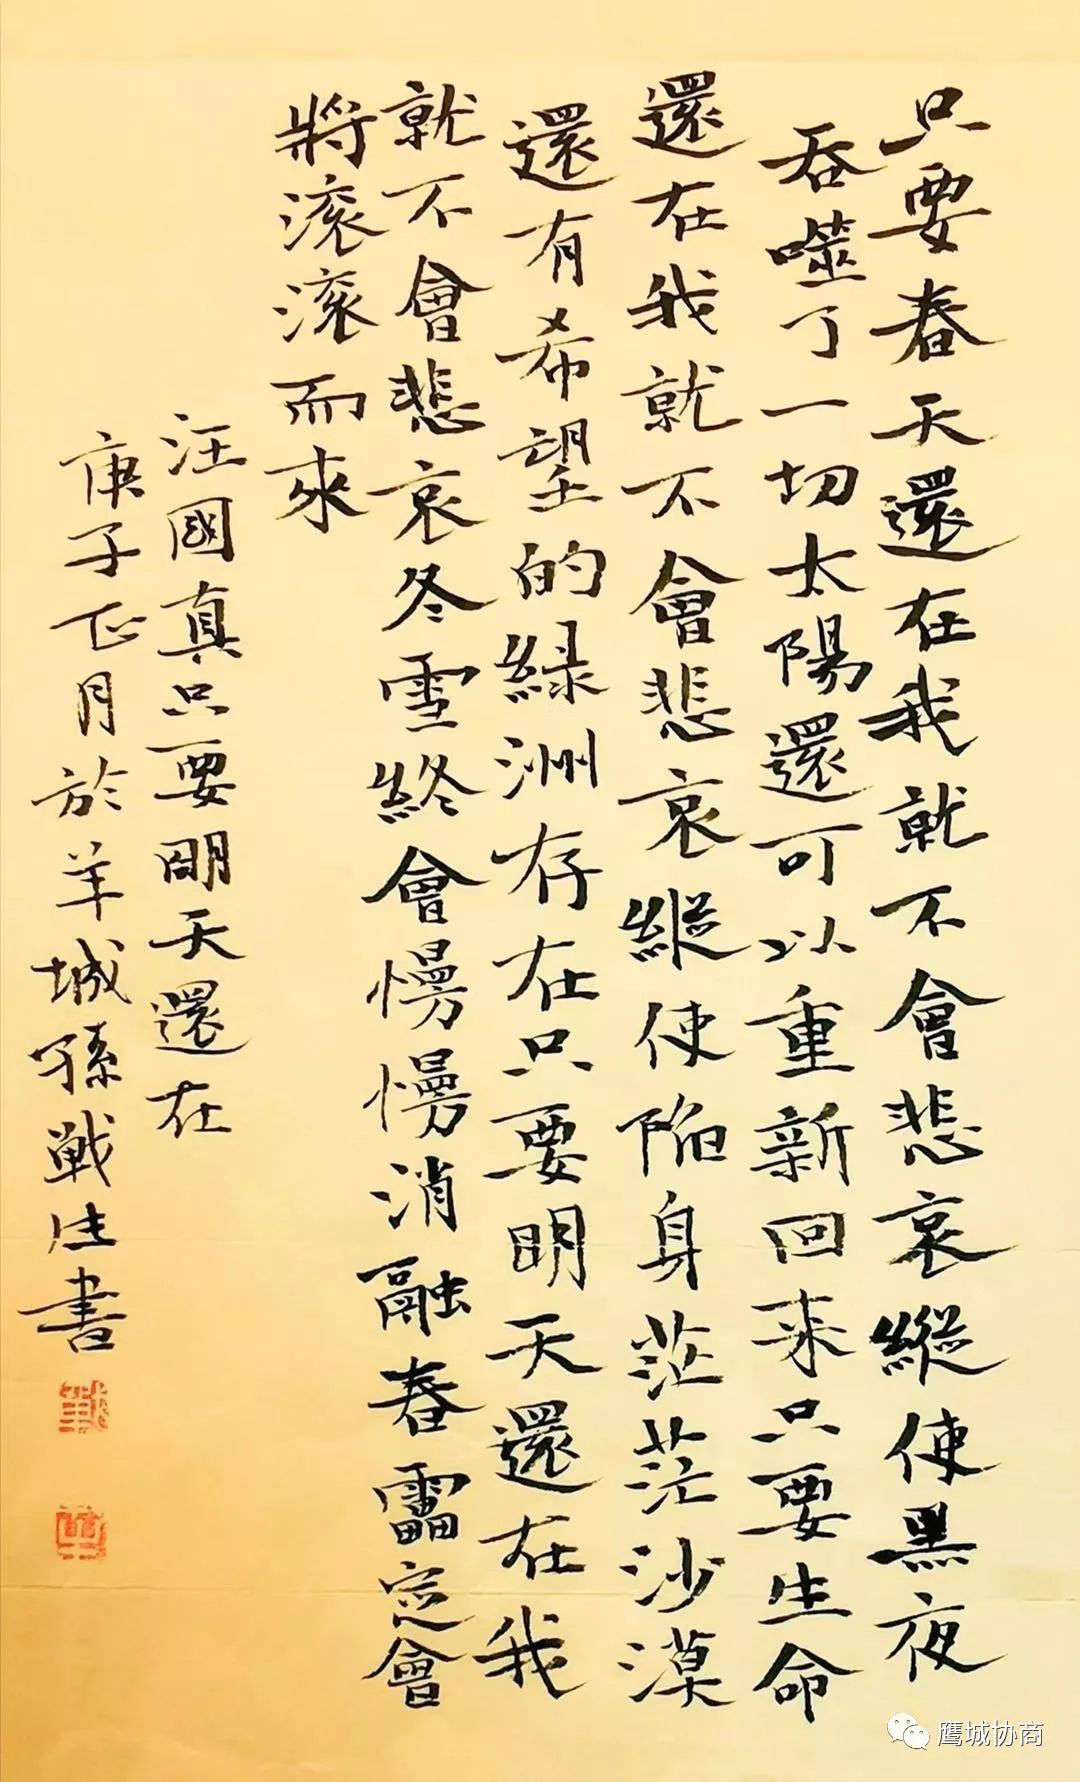 只要春天還在我就不會悲哀縱使黑夜
吞噬了一切太陽還可以重新回来只要生命
還在我就不會悲哀縱使陷身茫茫沙漠
還有希望的緑洲存在只要明天還在我
就不會悲哀冬雪終會慢慢消融春雷定會
將滚滚而來
汪國真只要明天還在
庚子正月於羊城孫戰生書
鹰城协商